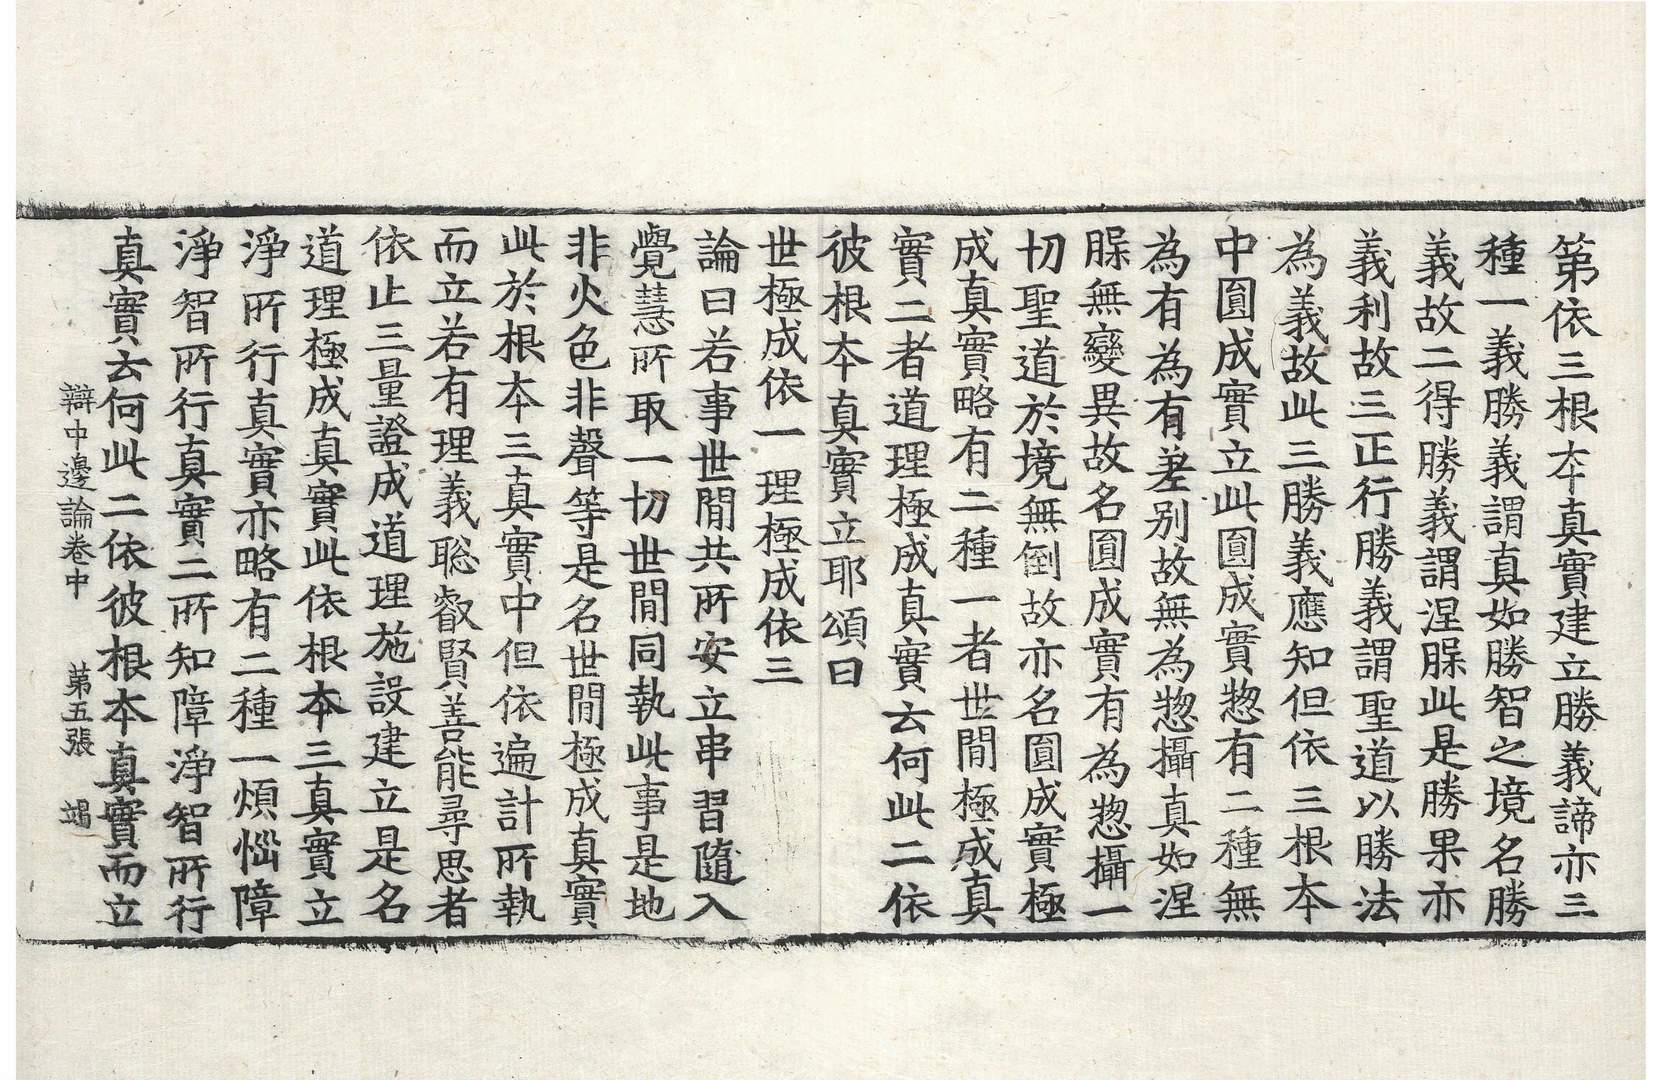 第依三根本真實建立勝義諦亦三
種一義勝義謂真如勝智之境名勝
義故二得勝義謂涅槃此是勝果亦
義利故三正行勝義謂聖道以勝法
為義故此三勝義應知但依三根本
中圓成實立此圓成實惣有二種無
為有為有差別故無為惣攝真如涅
槃無變異故名圓成實有為惣攝一
切聖道於境無倒故亦名圓成實極
成真實略有二種一者世間極成真
實二者道理極成真實云何此二依
彼根本真實立耶頌曰
世極成依一 理極成依三
論曰若事世間共所安立串習隨入
覺慧所取一切世間同執此事是地
非火色非聲等是名世間極成真實
此於根本三真實中但依遍計所執
而立若有理義聡叡賢善能尋思者
依止三量證成道理施設建立是名
道理極成真實此依根本三真實立
淨所行真實亦略有二種一煩惱障
淨智所行真實二所知障淨智所行
真實云何此二依彼根本真實而立
辯中邊論卷中 第五張 竭